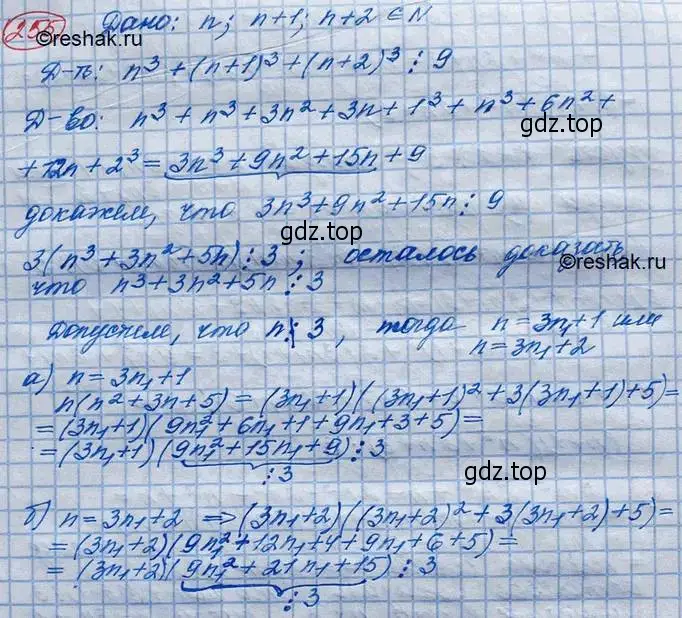 255 Дано: n; n+1; n+2 ∈ N
©reshak.ru
Д-ть: n³ + (n+1)³ + (n+2)³ ⋮ 9
Д-во: n³ + n³ + 3n² + 3n + 1³ + n³ + 6n² +
gdz.top
+ 12n + 2³ = 3n³ + 9n² + 15n + 9
докажем, что 3n³ + 9n² + 15n ⋮ 9
gdz.top
3(n³ + 3n² + 5n) ⋮ 3 ; осталось доказать,
©reshak.ru
что n³ + 3n² + 5n ⋮ 3
Допустим, что n ⋮̸ 3, тогда n = 3n₁+1 или
n = 3n₁+2
а) n = 3n₁+1
n(n² + 3n + 5) = (3n₁+1)((3n₁+1)² + 3(3n₁+1)+5) =
= (3n₁+1)(9n₁² + 6n₁ + 1 + 9n₁ + 3 + 5) =
= (3n₁+1)(9n₁² + 15n₁ + 9) ⋮ 3
⋮ 3
gdz.top
б) n = 3n₁+2 ⇒ (3n₁+2)((3n₁+2)² + 3(3n₁+2)+5) =
= (3n₁+2)(9n₁² + 12n₁ + 4 + 9n₁ + 6 + 5) =
= (3n₁+2)(9n₁² + 21n₁ + 15) ⋮ 3
gdz.top
⋮ 3
©reshak.ru